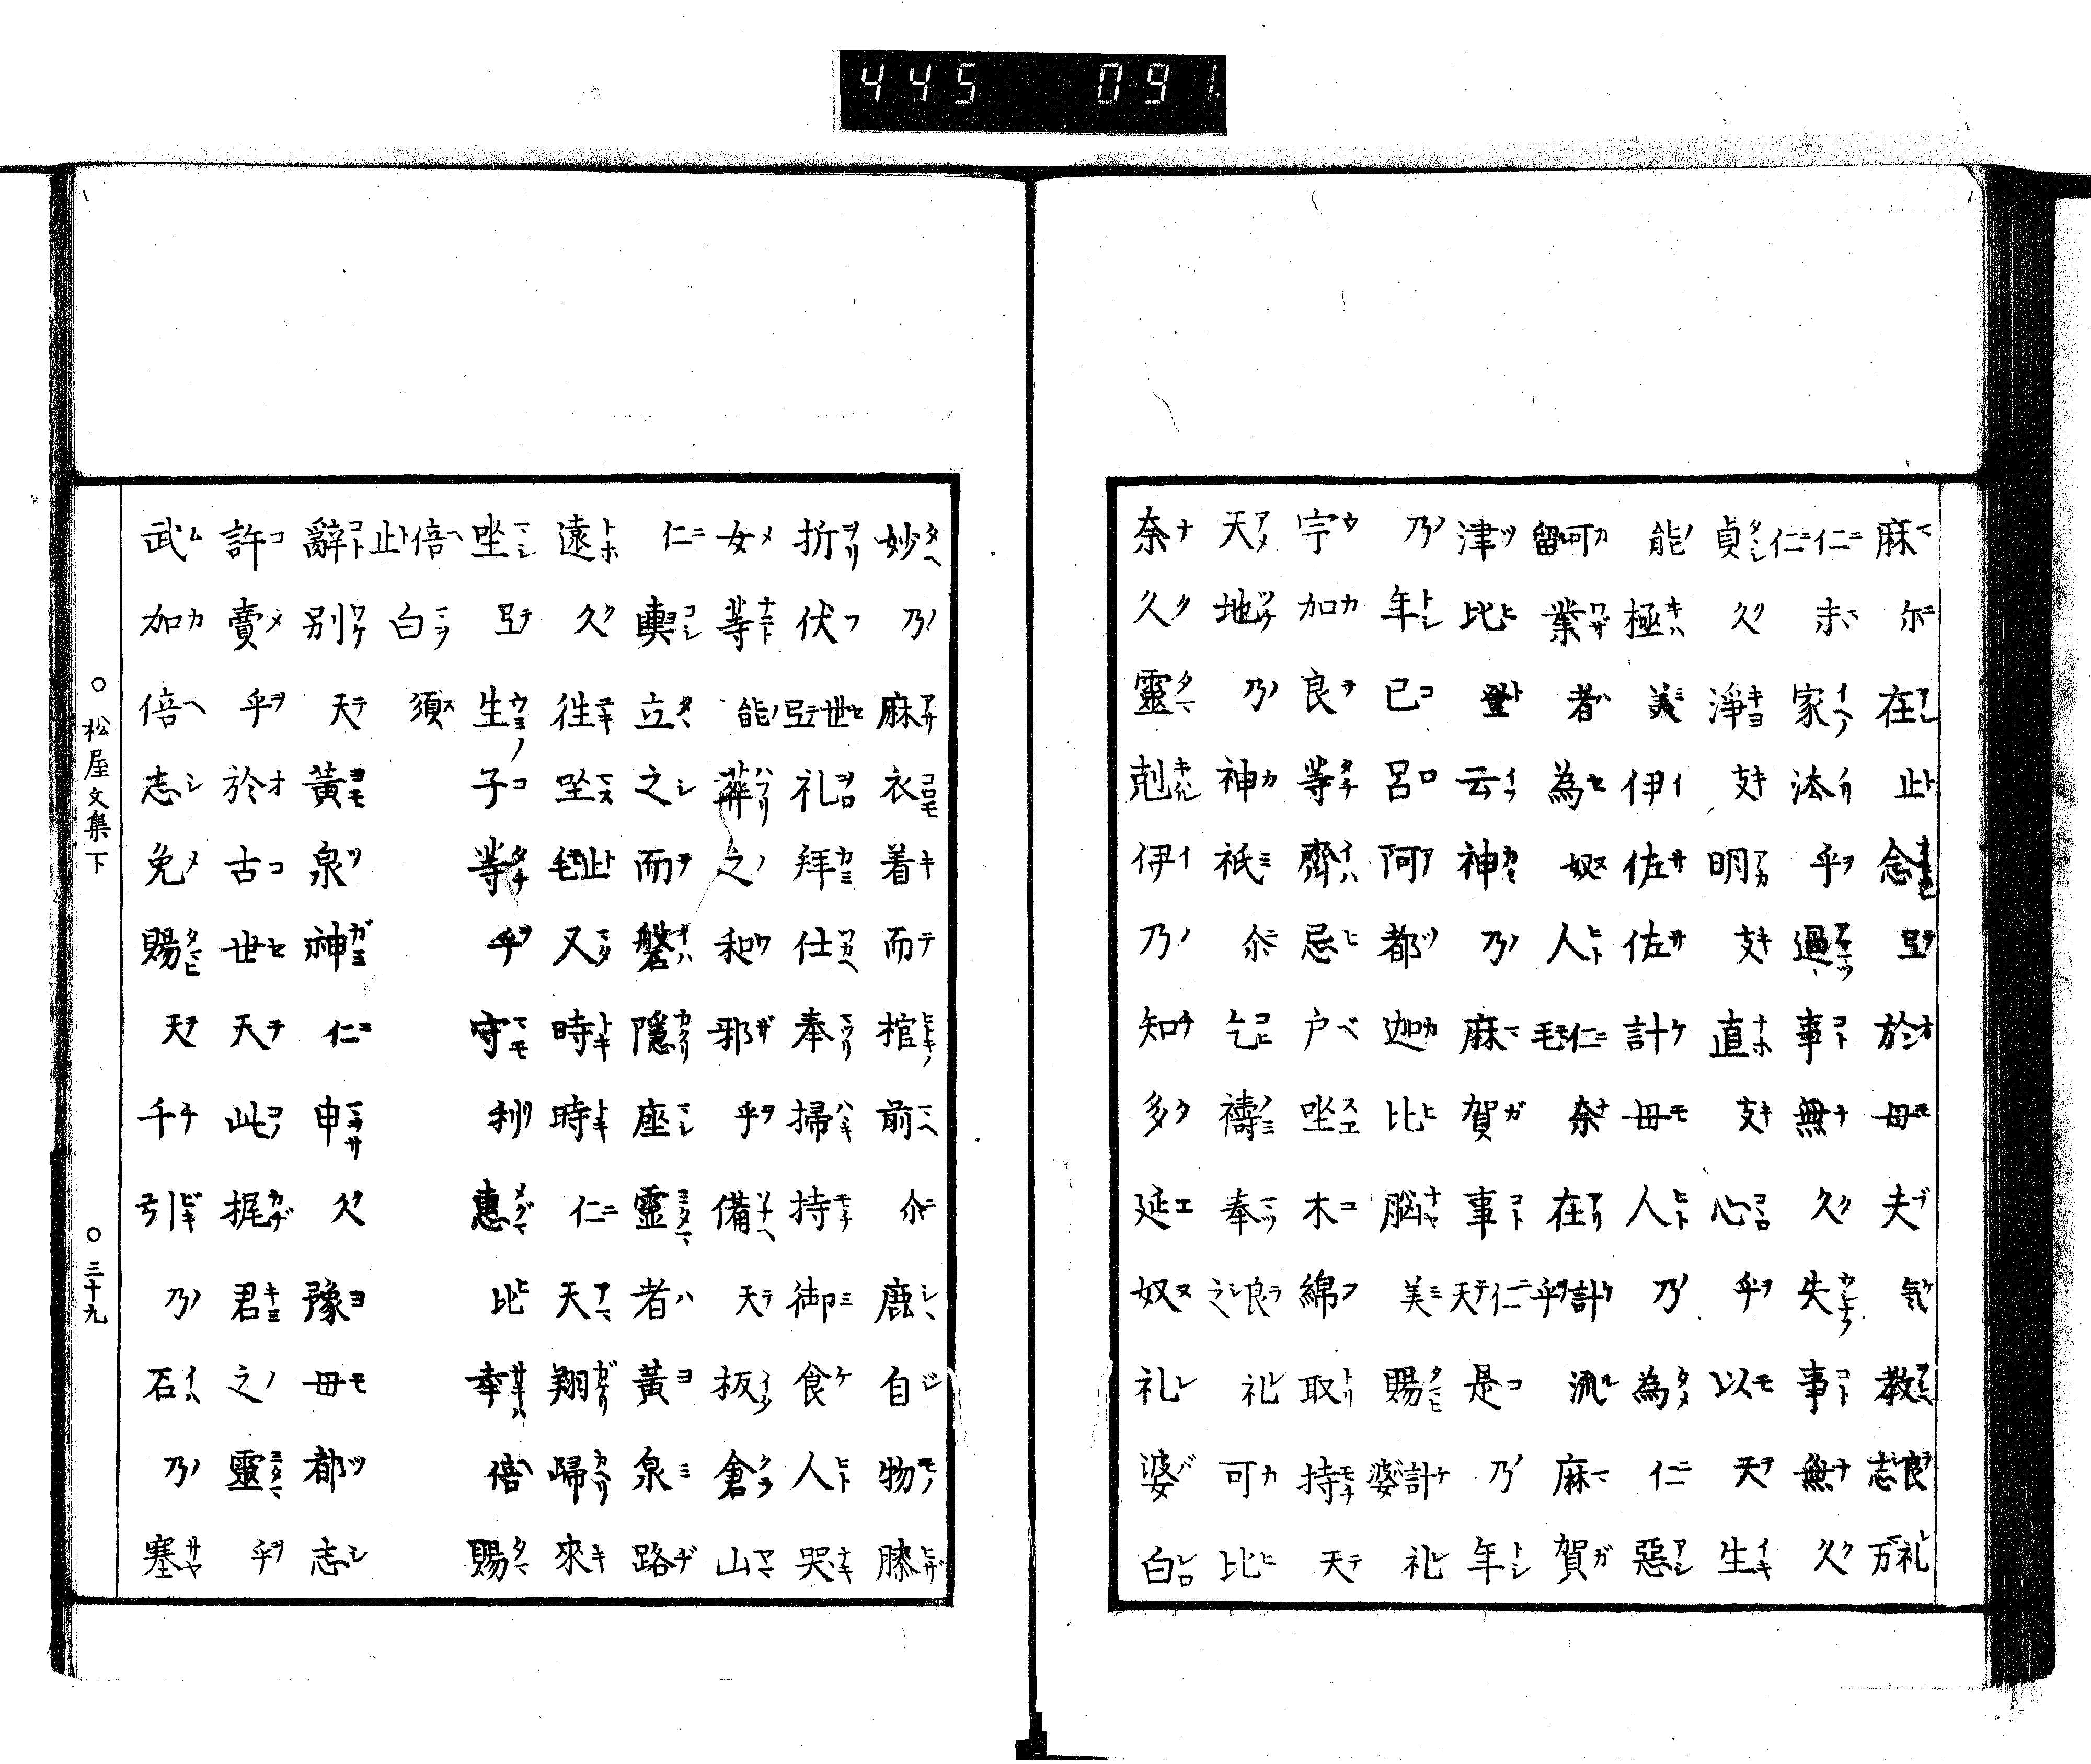 麻尓在止念弖於母夫氣教良志礼万
仁仁未家汰乎過事無久失事無久
貞久淨支明支直支心乎以天生
能極美伊佐佐計母人乃為仁惡
可留業者為奴人仁毛奈在計乎流麻賀
津比登云神乃麻賀事仁天是乃年
乃年已呂阿都迦比腦美賜計婆礼
宇加良等齊忌户坐木綿取持天
天地乃神祇尓乞禱奉良之礼可比
奈久靈剋伊乃知多延奴礼婆白
妙乃麻衣着而棺前尓鹿自物膝
折伏世弖礼拜仕奉掃持御食人哭
女等能葬之和邪乎備天板倉山
仁輿立之而磐隱座靈者黃泉路
遠久往坐止毛又時時仁天翔歸來
坐弖生子等乎守利惠比幸倍賜
倍止白須
辭別天黃泉神仁申久豫母都志
許賣乎於古世天此梶君之靈乎
武加倍志免賜天千引乃石乃塞
○松屋文集下 ○三十九
445 091